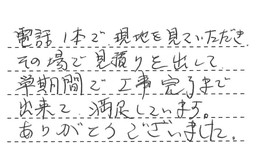 電話1本で現地を見ていただき
その場で見積りを出して
早期間で工事完了まで
出来て満足しています。
ありがとうございました。